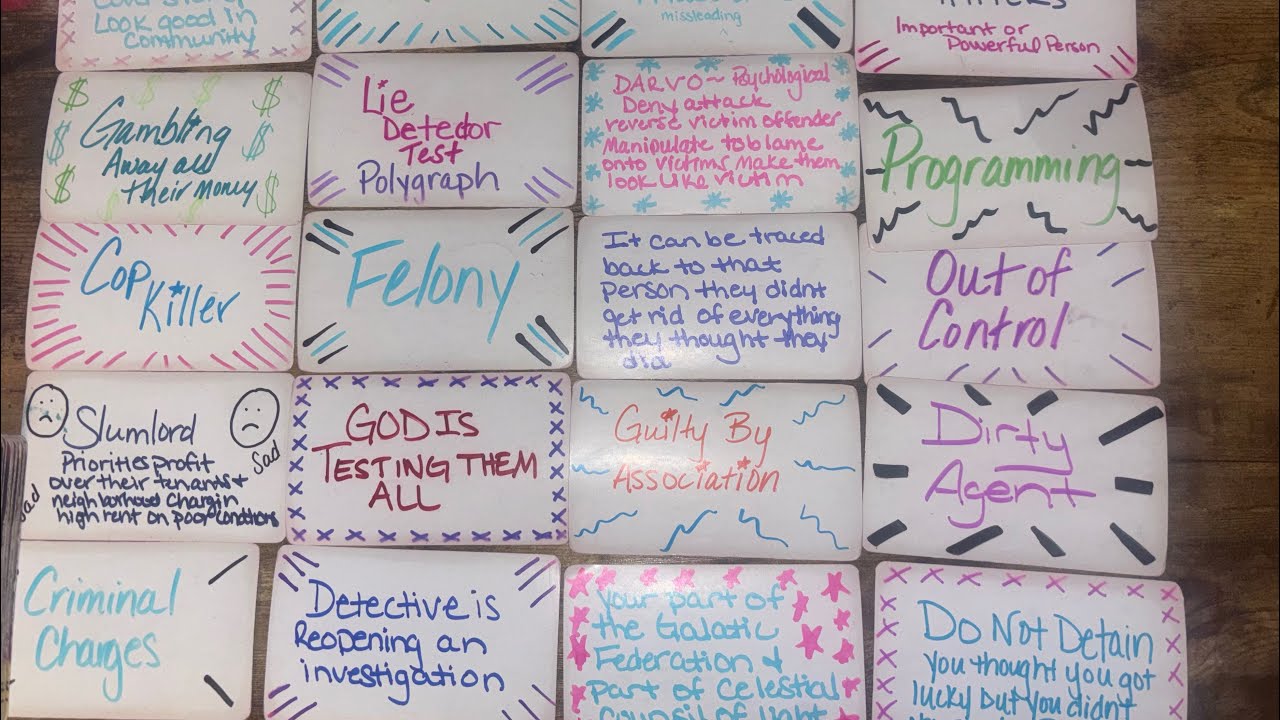 Look good in
Community
missleading
Important or
Powerful Person
Gambling
Away all
their Money
Lie
Detector
Test
Polygraph
DARVO~ Psychological
Deny attack
reverse victim offender
Manipulate to blame
onto victims Make them
look like victim
Programming
Cop
Killer
Felony
It can be traced
back to that
person they didnt
get rid of everything
they thought they
did
Out of
Control
Slumlord
Priorities profit
over their tenants +
neighborhood Chargin
high rent on poor Conditions
Sad
Sad
GOD IS
TESTING THEM
ALL
Guilty By
Association
Dirty
Agent
Criminal
Charges
Detective is
Reopening an
investigation
Your part of
the Galatic
Federation &
part of Celestial
Counsil of Light
DO NOT Detain
you thought you got
lucky but you didn't